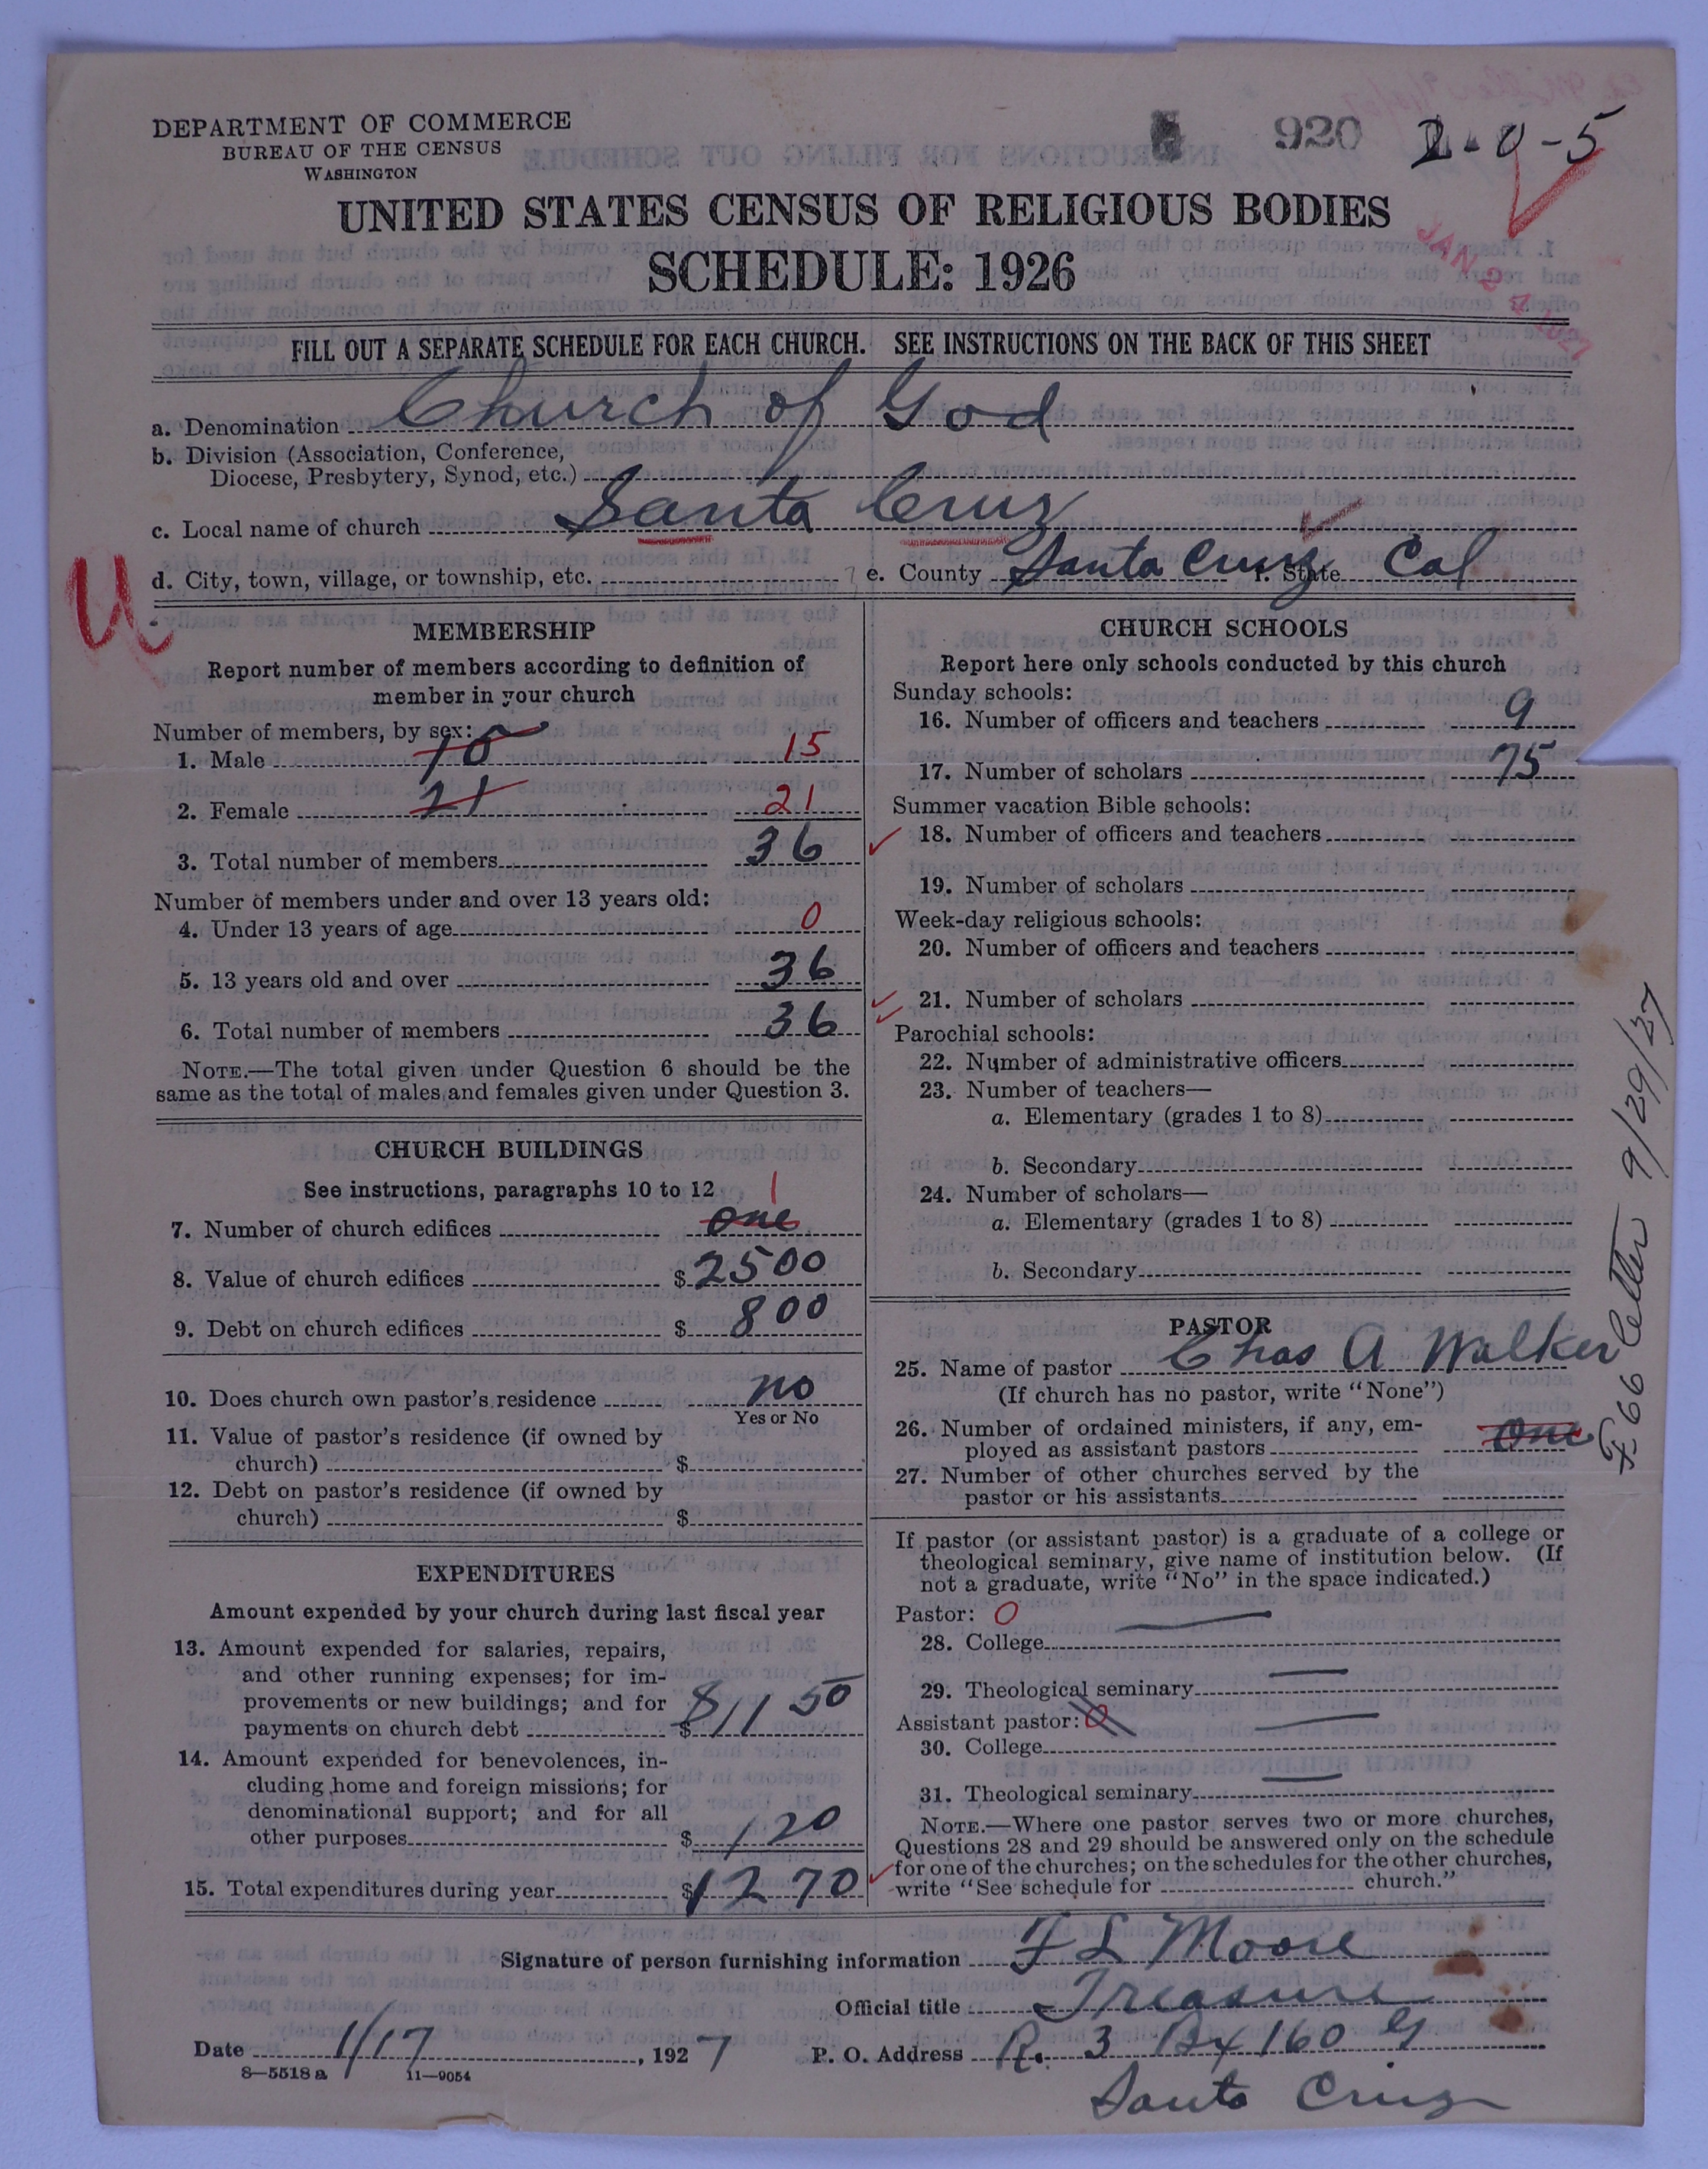 DEPARTMENT OF COMMERCE
BUREAU OF THE CENSUS
WASHINGTON
920
2-0-5
UNITED STATES CENSUS OF RELIGIOUS BODIES
SCHEDULE: 1926
JAN 24 1927
FILL OUT A SEPARATE SCHEDULE FOR EACH CHURCH. SEE INSTRUCTIONS ON THE BACK OF THIS SHEET
a. Denomination Church of God
b. Division (Association, Conference,
Diocese, Presbytery, Synod, etc.)
c. Local name of church Santa Cruz
d. City, town, village, or township, etc. e. County Santa Cruz f. State Cal
U
MEMBERSHIP
Report number of members according to definition of
member in your church
Number of members, by sex:
1. Male 15 15
2. Female 21 21
3. Total number of members 36
Number of members under and over 13 years old:
4. Under 13 years of age 0
5. 13 years old and over 36
6. Total number of members 36
NOTE.—The total given under Question 6 should be the
same as the total of males and females given under Question 3.
CHURCH BUILDINGS
See instructions, paragraphs 10 to 12 1
7. Number of church edifices one
8. Value of church edifices $2500
9. Debt on church edifices $ 800
10. Does church own pastor's residence no
Yes or No
11. Value of pastor's residence (if owned by
church) $
12. Debt on pastor's residence (if owned by
church) $
EXPENDITURES
Amount expended by your church during last fiscal year
13. Amount expended for salaries, repairs,
and other running expenses; for im-
provements or new buildings; and for
payments on church debt $ 811 50
14. Amount expended for benevolences, in-
cluding home and foreign missions; for
denominational support; and for all
other purposes $ 120
15. Total expenditures during year $1270
CHURCH SCHOOLS
Report here only schools conducted by this church
Sunday schools:
16. Number of officers and teachers 9
17. Number of scholars 75
Summer vacation Bible schools:
18. Number of officers and teachers
19. Number of scholars
Week-day religious schools:
20. Number of officers and teachers
21. Number of scholars
Parochial schools:
22. Number of administrative officers
23. Number of teachers—
a. Elementary (grades 1 to 8)
b. Secondary
24. Number of scholars—
a. Elementary (grades 1 to 8)
b. Secondary
PASTOR
25. Name of pastor Chas A Walker
(If church has no pastor, write "None")
26. Number of ordained ministers, if any, em-
ployed as assistant pastors One
27. Number of other churches served by the
pastor or his assistants
If pastor (or assistant pastor) is a graduate of a college or
theological seminary, give name of institution below. (If
not a graduate, write "No" in the space indicated.)
Pastor: 0
28. College
29. Theological seminary
Assistant pastor: 0
30. College
31. Theological seminary
NOTE.—Where one pastor serves two or more churches,
Questions 28 and 29 should be answered only on the schedule
for one of the churches; on the schedules for the other churches,
write "See schedule for church."
66 letter 9/29/27
Signature of person furnishing information F L Moore
Official title Treasure
Date 1/17, 1927 P. O. Address R. 3 Bx 160 G
8—5518a 11—9054
Santa Cruz